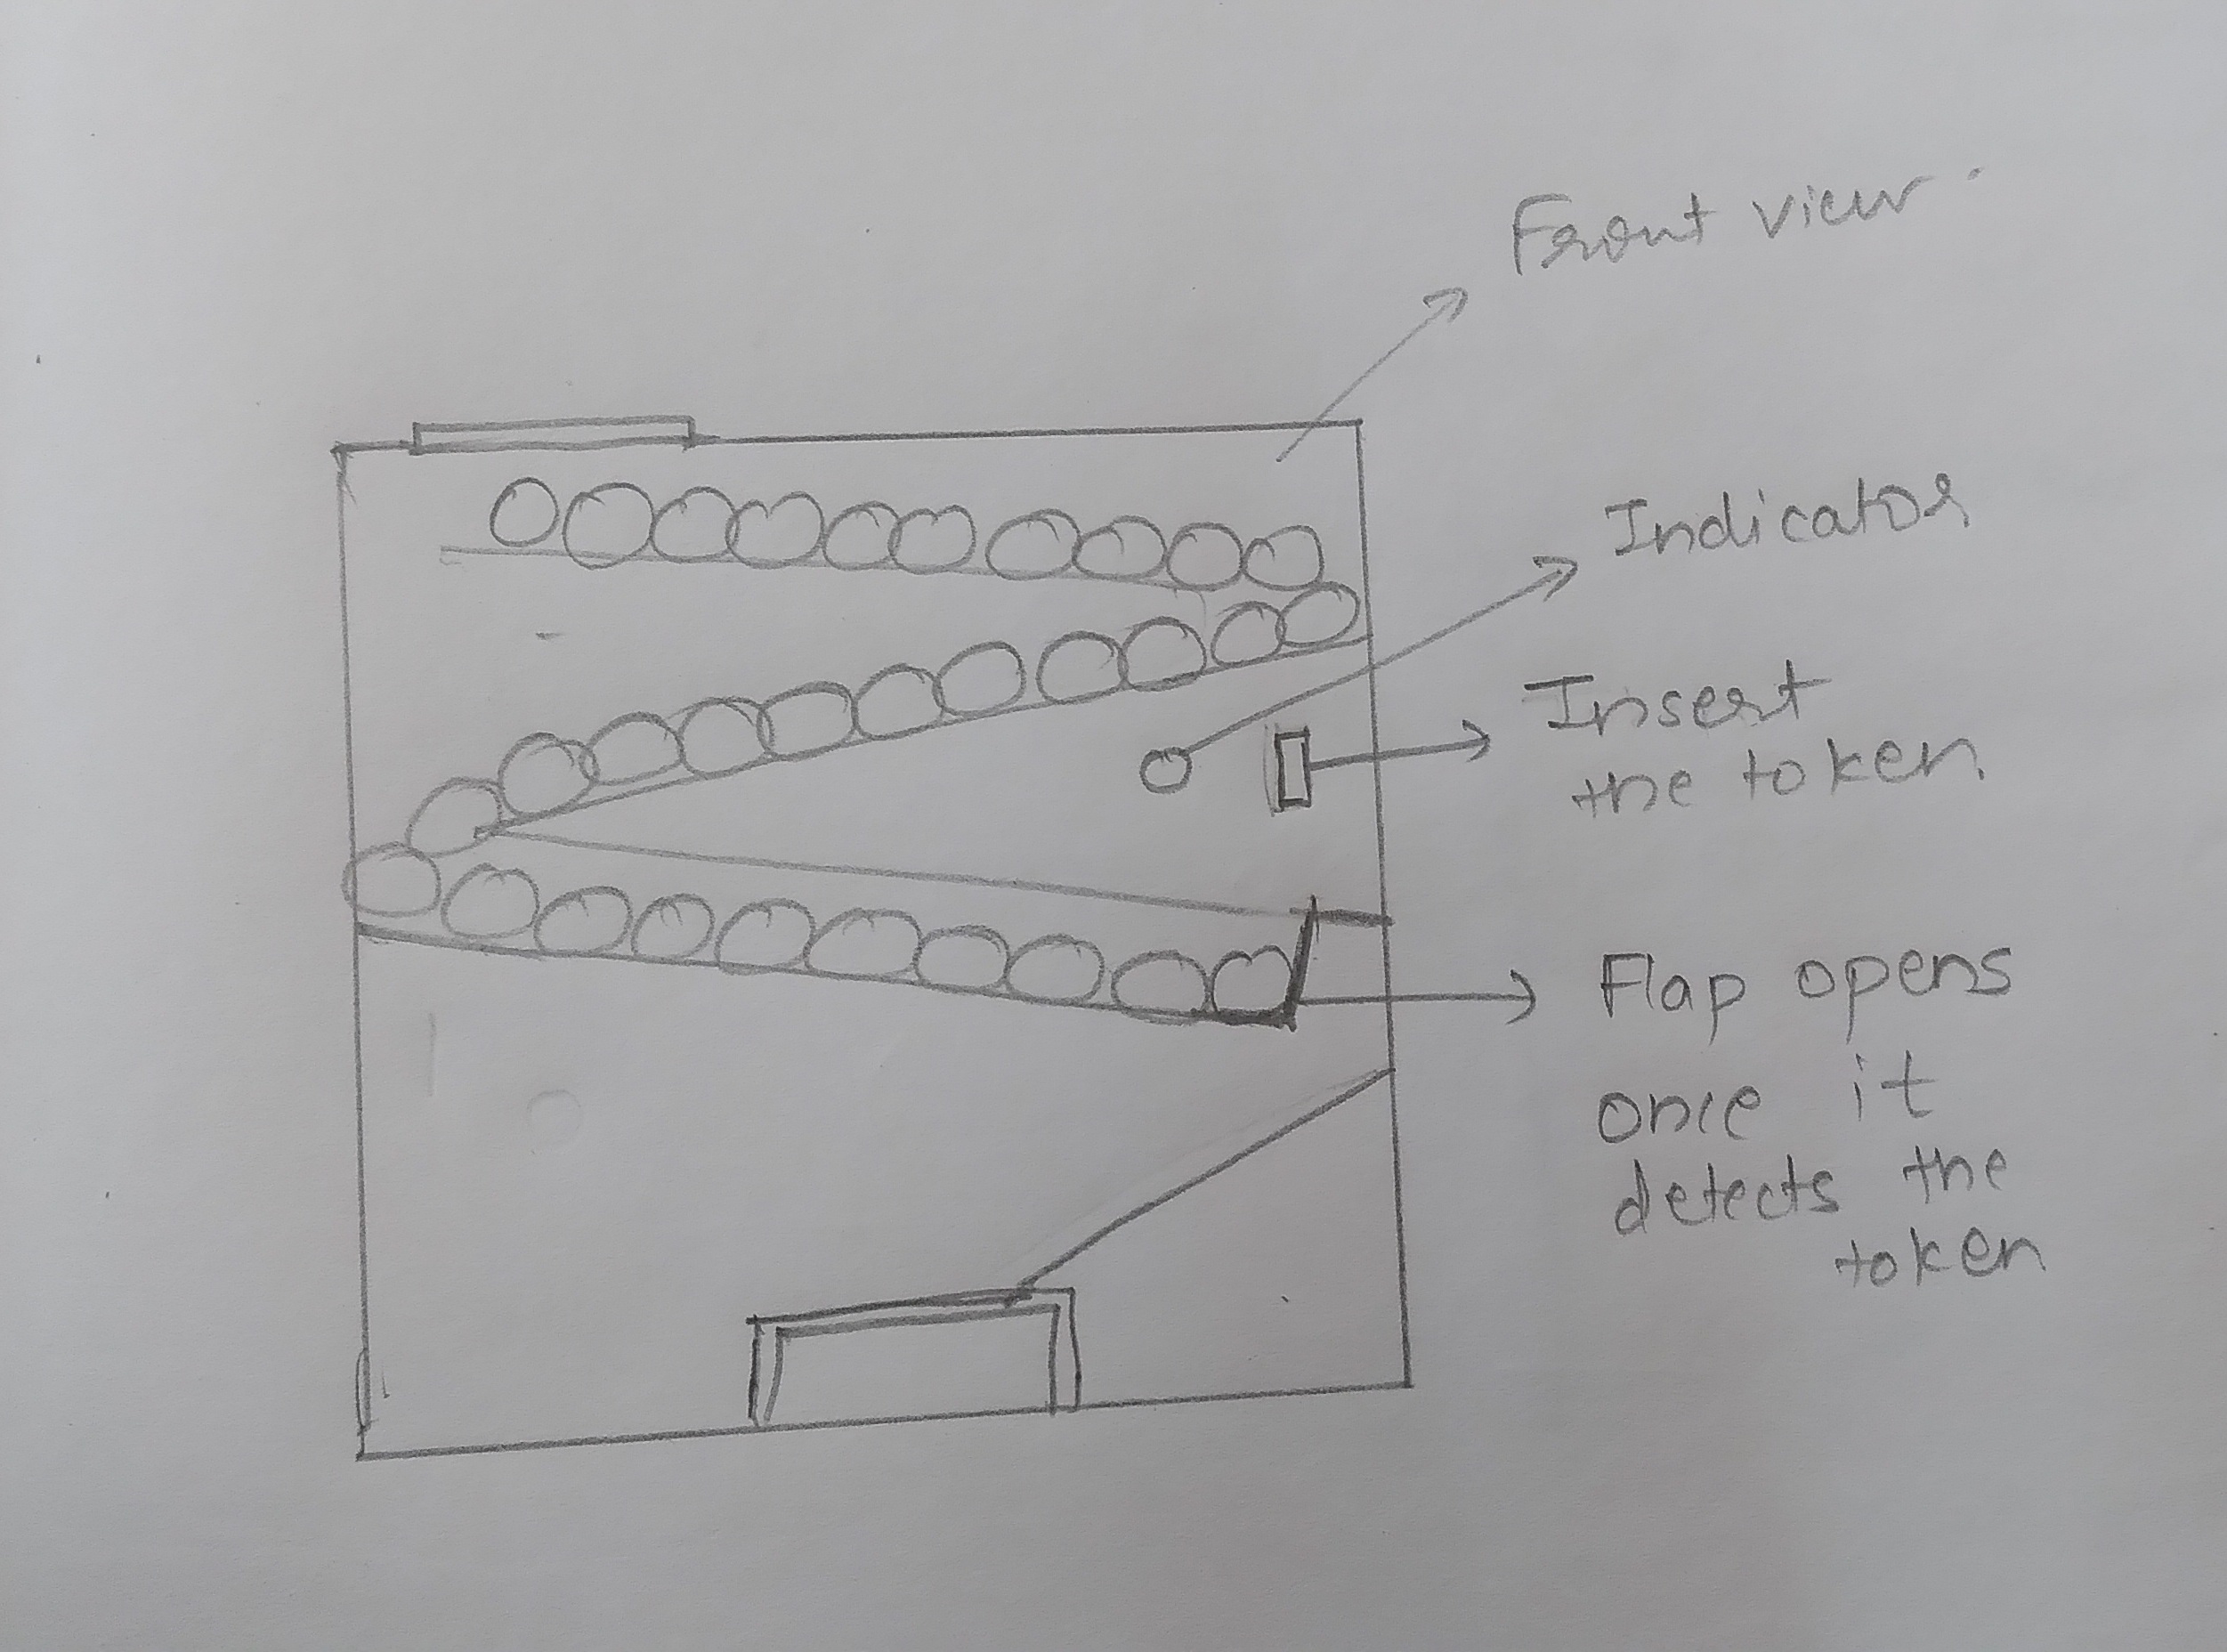 Front view.
Indicator
Insert
the token
Flap opens
once it
detects the
token